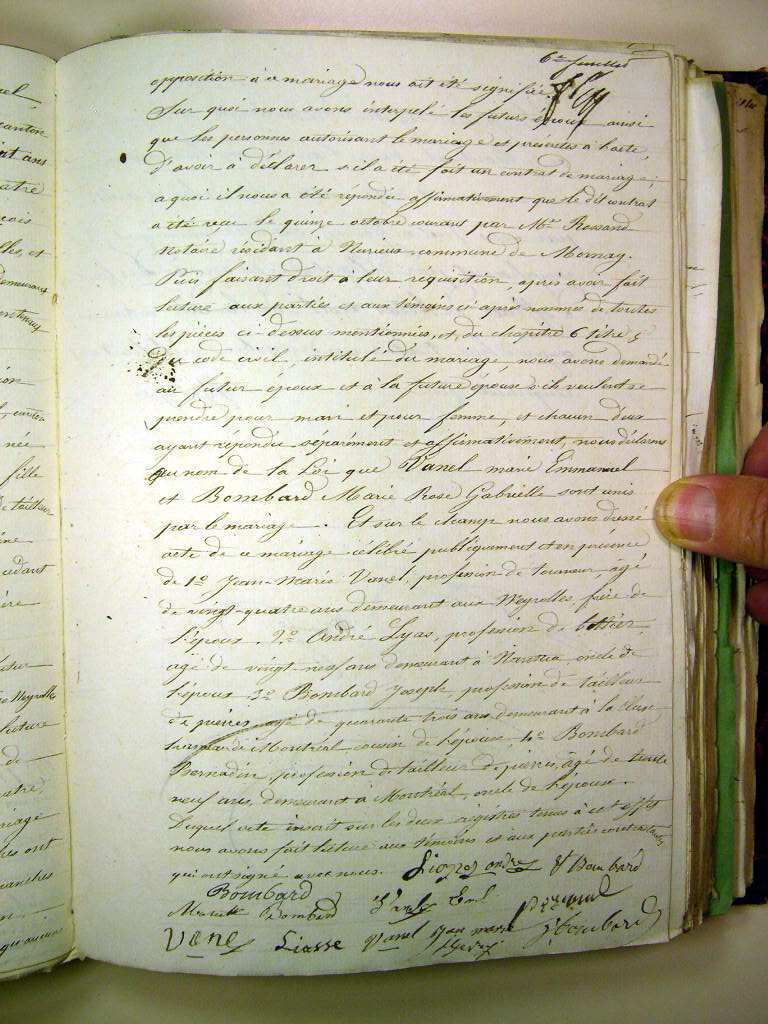 6e feuillet
opposition à ce mariage nous ait été signifiée.
Sur quoi nous avons interpelé les futurs époux ainsi
que les personnes autorisant le mariage et présentes à l'acte,
d'avoir à déclarer s'il a été fait un contrat de mariage;
a quoi il nous a été répondu affirmativement que le dit contrat
a été reçu le quinze octobre courant par Me Rossand
notaire résidant à Nurieux commune de Mornay.
Puis faisant droit à leur réquisition, après avoir fait
lecture aux parties et aux témoins ci après nommés de toutes
les pièces ci-dessus mentionnées, et du chapitre 6 titre 5
du code civil, intitulé du mariage, nous avons demandé
au futur époux et à la future épouse s'ils veulent se
prendre pour mari et pour femme, et chacun d'eux
ayant répondu séparément et affirmativement, nous déclarons
au nom de la Loi que Vanel marie Emmanuel
et Bombard Marie Rose Gabrielle sont unis
par le mariage. Et sur le champ nous avons dressé
acte de ce mariage célébré publiquement et en présence
de 1o Jean-Marie Vanel, profession de tourneur, agé
de vingt-quatre ans demeurant aux Neyrolles, frère de
l'époux 2o André Lyas, profession de
agé de vingt neuf ans demeurant à Nantua oncle de
l'époux 3o Bombard Joseph, profession de tailleur
de pierres agé de quarante trois ans demeurant à la Cluse
hameau de Montréal cousin de l'épouse, 4o Bombard
Bernadin, profession de tailleur de pierres, âgé de trente
neuf ans, demeurant à Montréal, oncle de l'épouse.
Duquel acte inscrit sur les deux registres tenus à cet effet
nous avons fait lecture aux témoins et aux parties contractantes
qui ont signé avec nous. andre Bombard
Bombard
Bombard
Vanel Liasse Vanel Jean marie Bombard